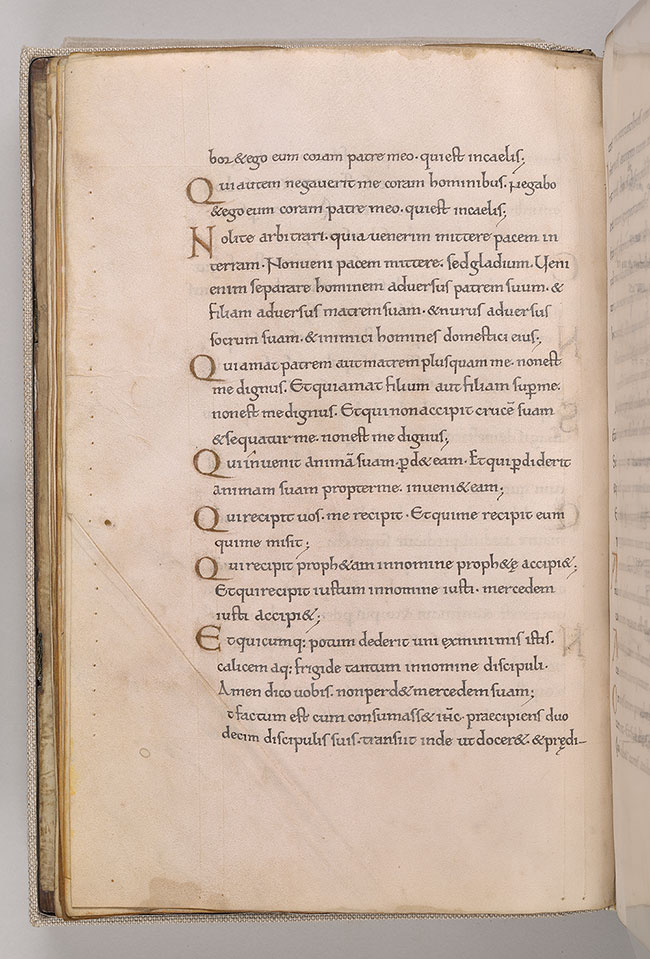 bor & ego eum coram patre meo. qui est in caelis;
Qui autem negaverit me coram hominibus. negabo
& ego eum coram patre meo. qui est in caelis;
Nolite arbitrari. quia venerim mittere pacem in
terram. Non veni pacem mittere. sed gladium. Veni
enim separare hominem adversus patrem suum. &
filiam adversus matrem suam. & nurus adversus
socrum suam. & inimici hominis domestici eius;
Qui amat patrem aut matrem plus quam me. non est
me dignus. Et qui amat filium aut filiam sup me.
non est me dignus. Et qui non accipit crucē suam
& sequatur me. non est me dignus;
Qui invenit animā suam. ꝑd& eam. Et qui ꝑdiderit
animam suam propter me. inveni& eam;
Qui recipit uos. me recipit. Et qui me recipit eum
qui me misit;
Qui recipit proph&am in nomine proph&ę accipi&;
Et qui recipit iustum in nomine iusti. mercedem
iusti accipi&;
Et quicumq: potum dederit uni ex minimis istis.
calicem aq: frigide tantum in nomine discipuli.
Amen dico uobis. non perd& mercedem suam;
t factum est cum consummass& ihc. praecipiens duo
decim discipulis suis. transiit inde ut docer&. & prędi-